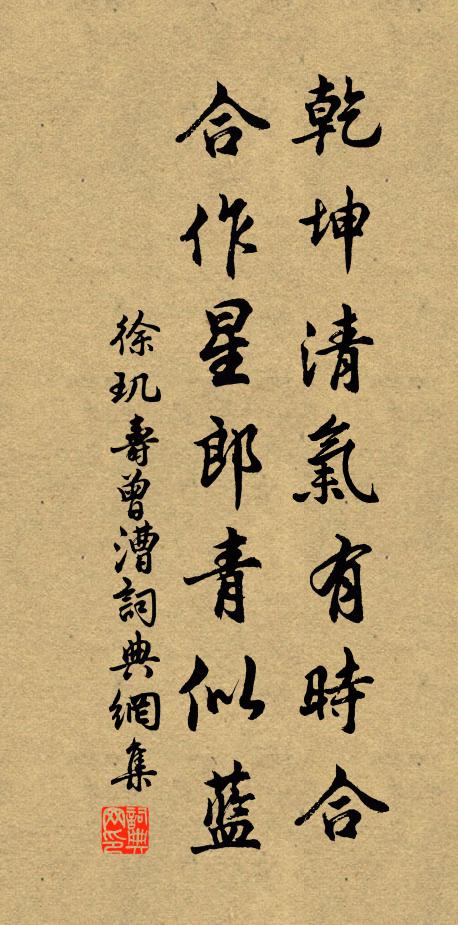 乾坤清氣有時合
合作星郎青似藍
徐玑壽曾漕詞典網集
詞典網印